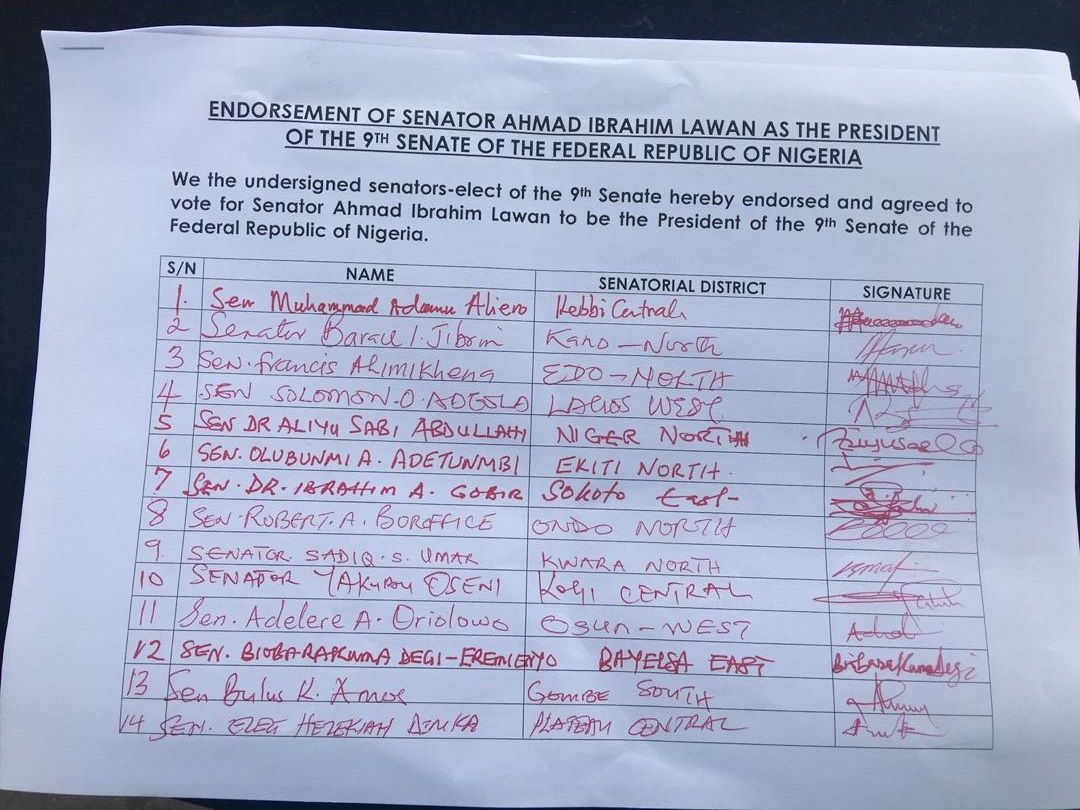 ENDORSEMENT OF SENATOR AHMAD IBRAHIM LAWAN AS THE PRESIDENT
OF THE 9TH SENATE OF THE FEDERAL REPUBLIC OF NIGERIA
We the undersigned senators-elect of the 9th Senate hereby endorsed and agreed to
vote for Senator Ahmad Ibrahim Lawan to be the President of the 9th Senate of the
Federal Republic of Nigeria.
S/N NAME SENATORIAL DISTRICT SIGNATURE
1. Sen Muhammad Adamu Aliero Kebbi Central
2 Senator Barau I. Jibrin Kano - North
3 Sen. francis Alimikhena EDO - NORTH
4 SEN SOLOMON. O. ADEOLA LAGOS WEST
5 SEN DR ALIYU SABI ABDULLAHI NIGER NORTH
6 SEN. OLUBUNMI A. ADETUNMBI EKITI NORTH.
7 SEN. DR. IBRAHIM A. GOBIR Sokoto East
8 SEN. ROBERT. A. BOROFFICE ONDO NORTH
9. SENATOR. SADIQ. S. UMAR KWARA NORTH
10 SENATOR YAKUBU OSENI Kogi CENTRAL
11 Sen. Adelere A. Oriolowo Osun - WEST
12 SEN. BIOBARAKUMA DEGI-EREMIENYO BAYELSA EAST BioBaraKumaDegi
13 Sen Bulus K. Amos GOMBE SOUTH
14 SEN. HEZEKIAH DIMKA PLATEAU CENTRAL